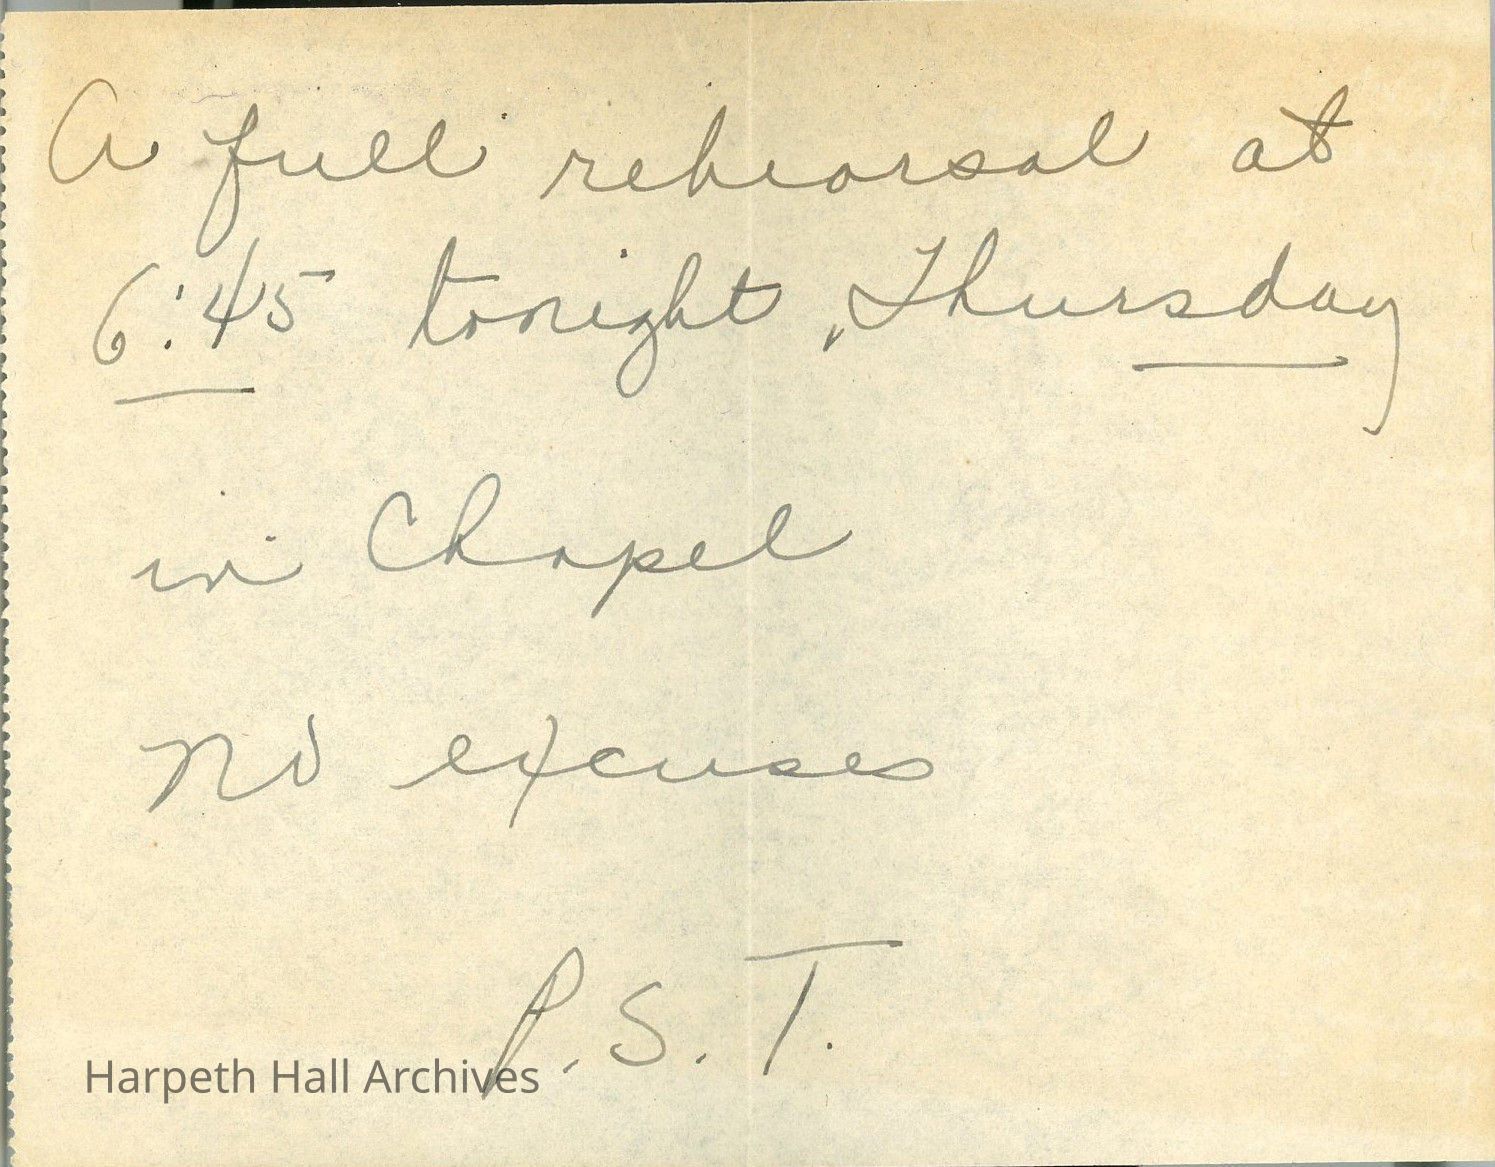 A full rehearsal at
6:45 tonight, Thursday
in Chapel
No excuses
P.S.T.
Harpeth Hall Archives